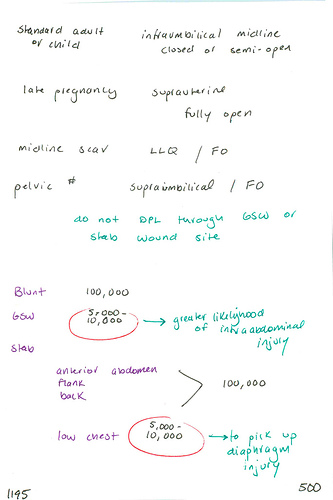 standard adult infraumbilical midline
or child closed or semi-open
late pregnancy suprauterine
fully open
midline scar LLQ / FO
pelvic # supraumbilical / FO
do not DPL through GSW or
stab wound site
Blunt 100,000
GSW 5,000-
10,000 → greater likelihood
of intraabdominal
injury
Stab
anterior abdomen
flank
back
100,000
low chest 5,000-
10,000 → to pick up
diaphragm
injury
1195 500